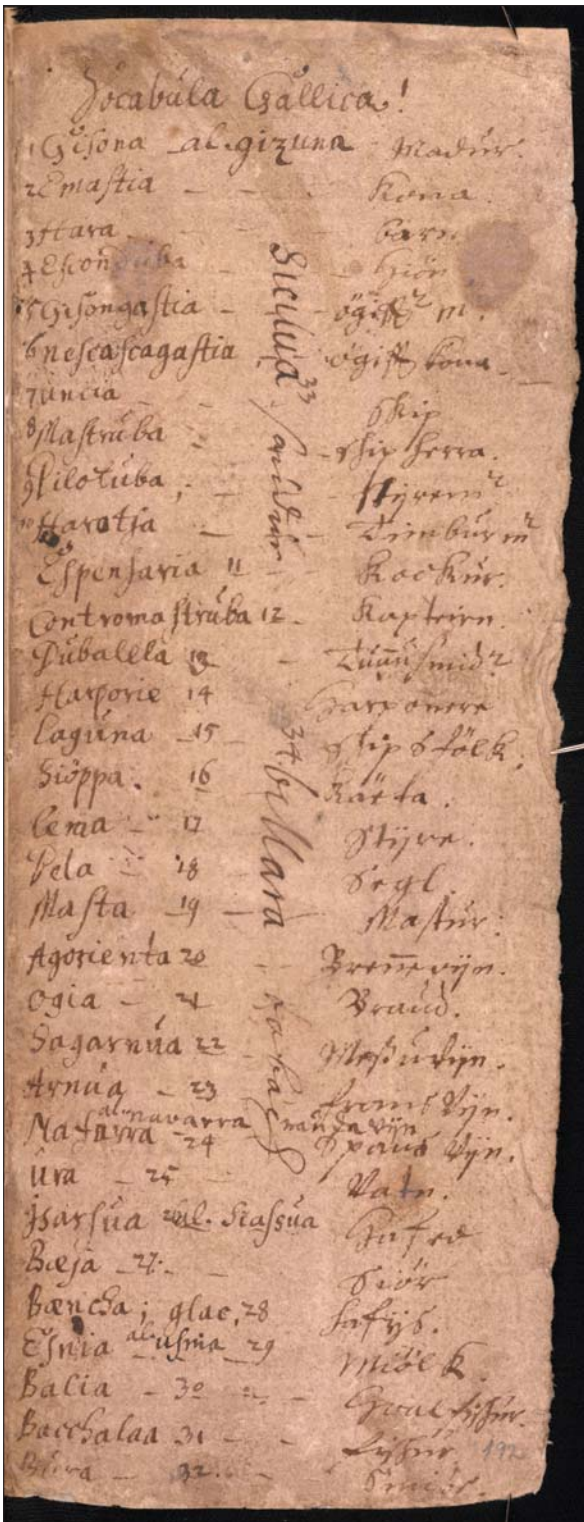 Vocabula Gallica!
1 Gisona al. gizuna Madur.
2 Emastia - - - kona.
3 Hara - - - barn
4 Escon
5 Gisongastia - - ogift m.
6 nescascagastia ogift kona
7 uncia - - skip
8 Mastruba - - skip herra.
9 Pilotuba, - - styrem
10 Harotia - - Timburm
Espensaria 11 - kockur.
Contromastruba 12 - kapteirn.
Dubalela 13 - smid
Harporie 14 harponere
Laguna - 15 - skips folk.
Sioppa. 16 kaeta.
Lema - 17 Styre.
Vela - 18 Segl.
Masta - 19 - Mastur.
Agorienta 20 - Brennevijn.
Ogia - 21 Braud.
Sagarnua 22 - Messuvijn.
Arnua - 23 frans Vijn.
Nafarra al. navarra 24 Spans Vijn.
ura - 25 - Vatn.
Jsarsua 26 al. Stassua
Bæja - 27. - Siör
Bæncha; glac, 28 hafijs.
Esnia al. usnia 29 miólk.
Balia - 30 - hvalfiskur.
Bacchalaa 31 - - fiskur
Bura - 32. - Smiör.
33
34
192